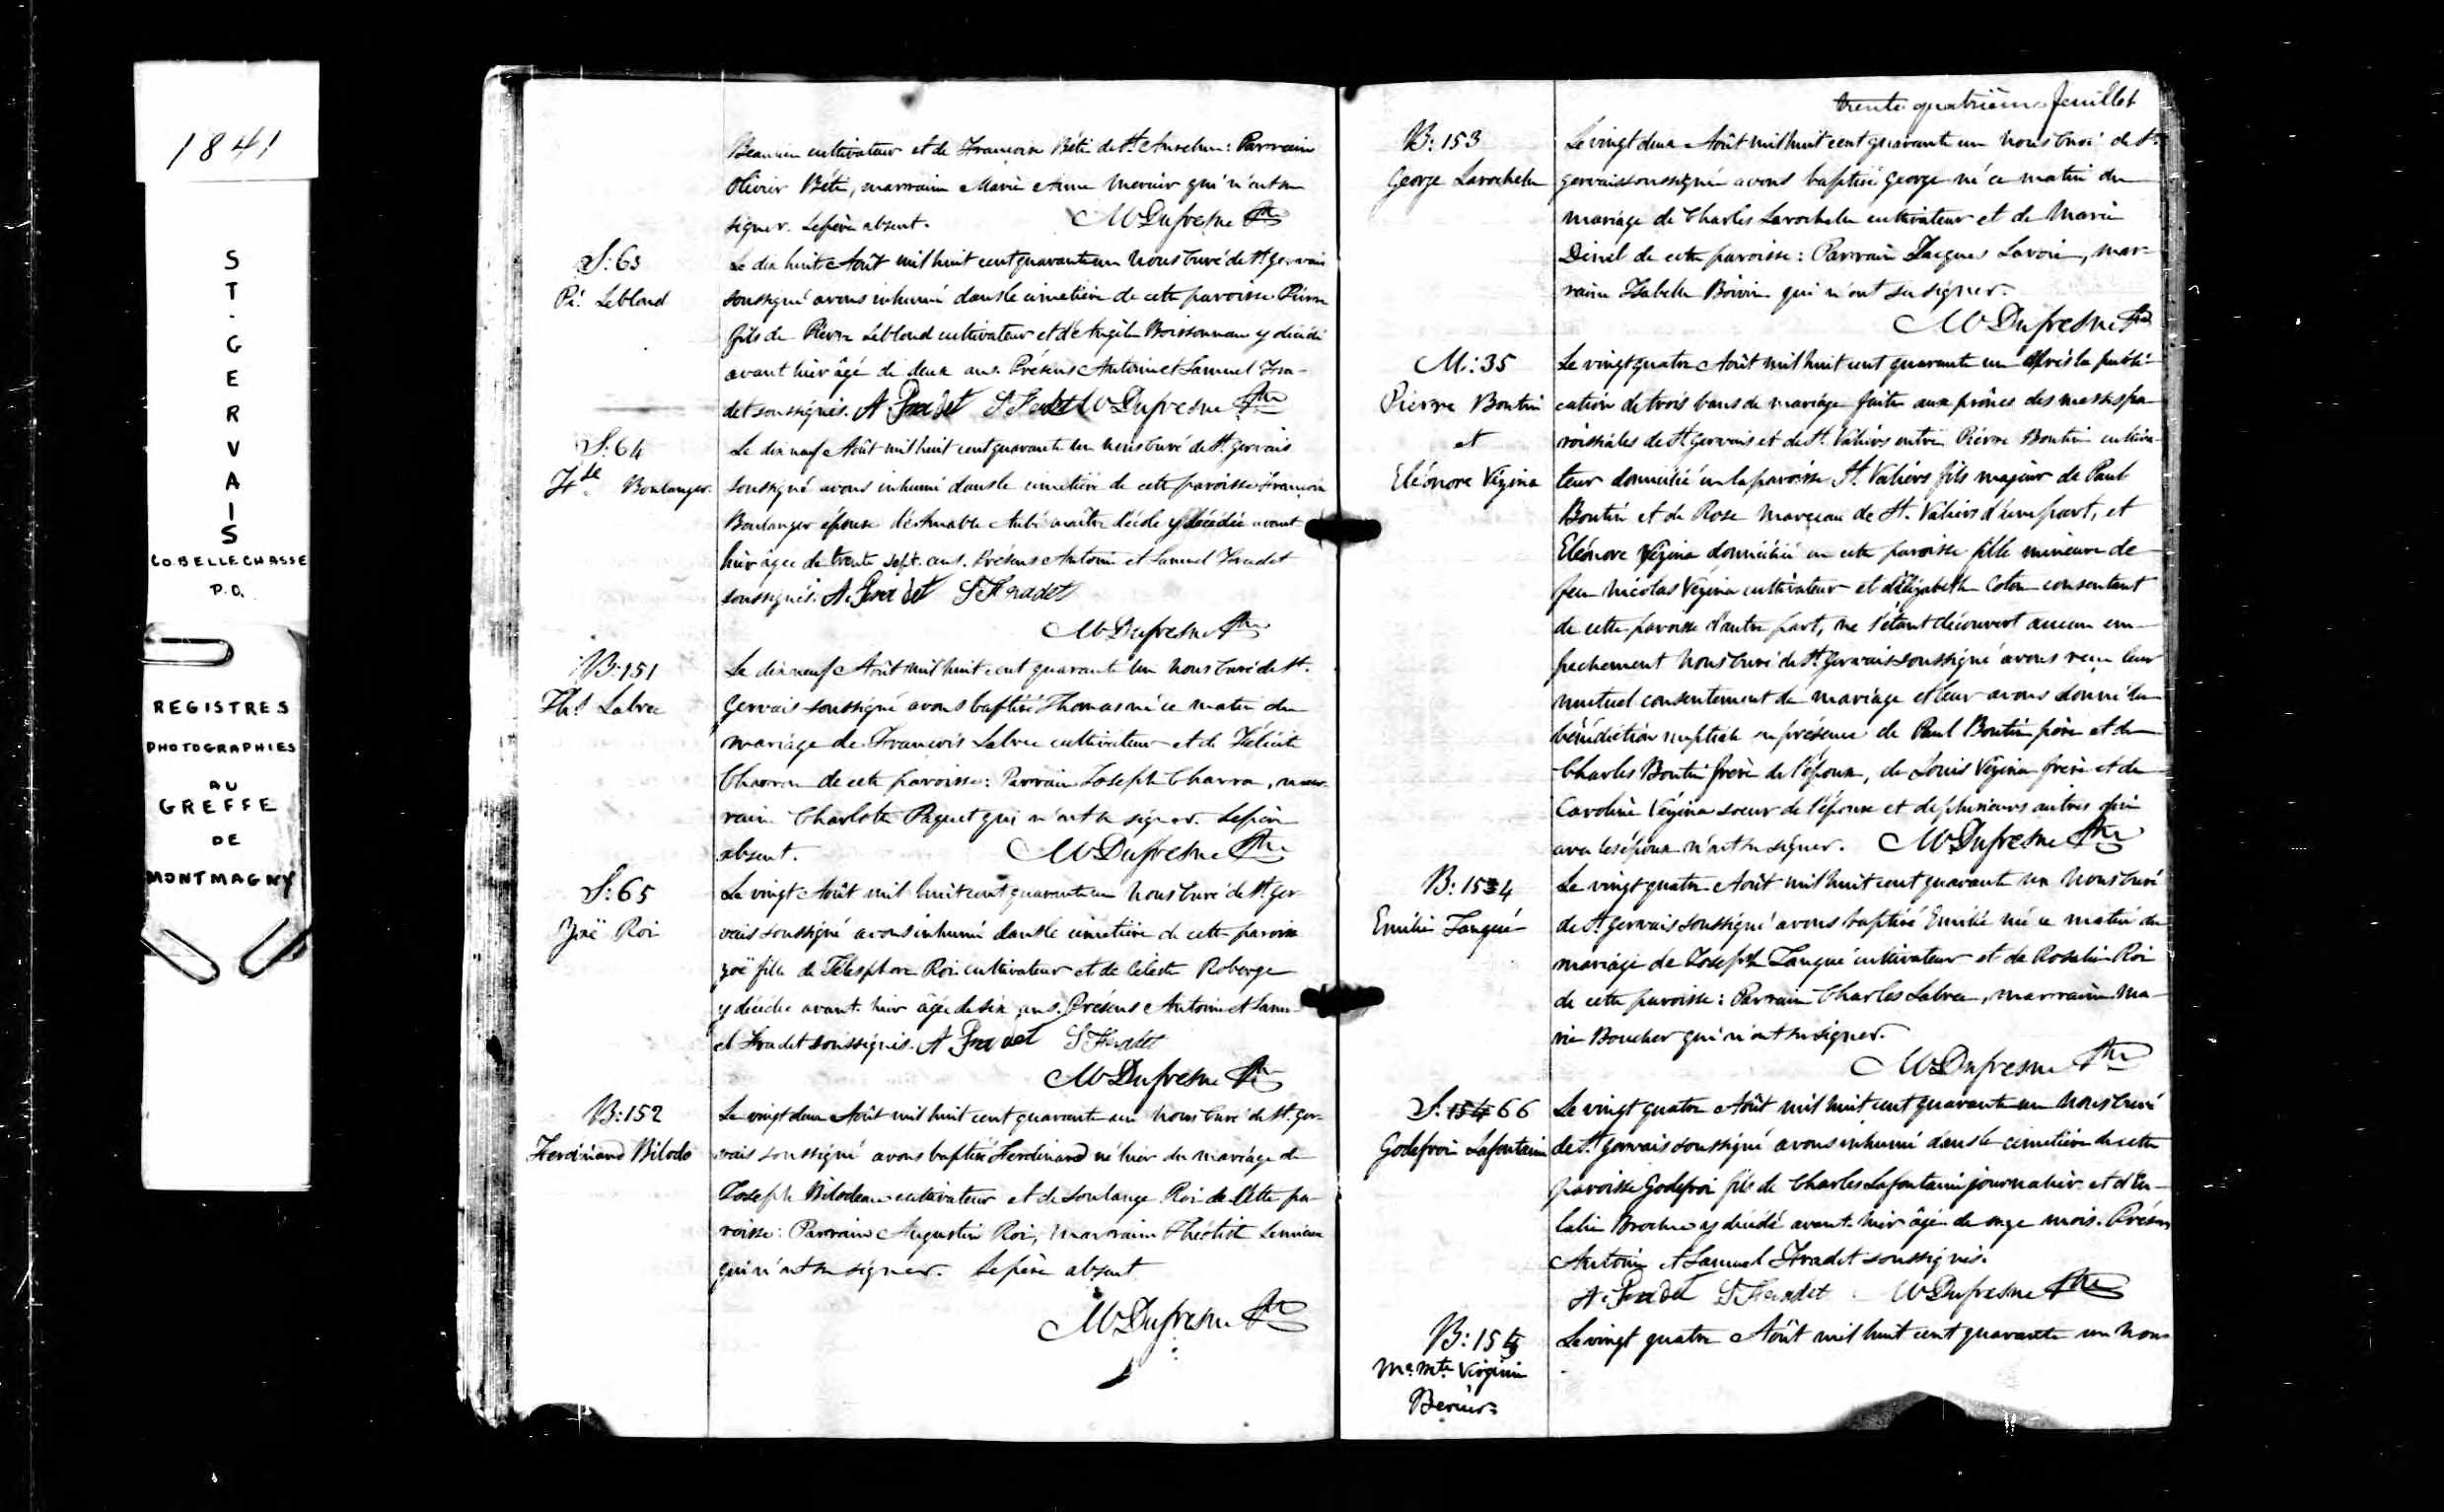 1841
ST. GERVAIS
CO. BELLECHASSE
P.Q.
REGISTRES
PHOTOGRAPHIES
AU
GREFFE
DE
MONTMAGNY
cultivateur et de Françoise Béti de St Anselme: Parrain
Olivier Béti, marraine Marie Anne Mercier qui n'ont su
signer. Le père absent. MDufresne Ptre
S: 63
Pre Leblond
Le dix huit Août mil huit cent quarante un Nous Curé de St Gervais
soussigné avons inhumé dans le cimetière de cette paroisse Pierre
fils de Pierre Leblond cultivateur et d'Angèle Boissonnau y décédé
avant hier âgé de deux ans. Présens Antoine et Samuel Fra-
det soussignés. A. Fradet S Fradet MDufresne Ptre
S: 64
Fse Boulanger
Le dix neuf Août mil huit cent quarante un Nous Curé de St. Gervais
soussigné avons inhumé dans le cimetière de cette paroisse Françoise
Boulanger épouse d'Aimable Aubé maître d'école y décédée avant
hier âgée de trente sept ans. Présens Antoine et Samuel Fradet
soussignés. A. Fradet S Fradet
MDufresne Ptre
B: 151
Ths Labrec
Le dix neuf Août mil huit cent quarante un Nous Curé de St.
Gervais soussigné avons baptisé Thomas né ce matin du
mariage de François Labrec cultivateur et de Félicité
Charron de cette paroisse: Parrain Joseph Charron, mar-
raine Charlotte Paquet qui n'ont su signer. Le père
absent. MDufresne Ptre
S: 65
Zoë Roi
Le vingt Août mil huit cent quarante un Nous Curé de St. Ger-
vais soussigné avons inhumé dans le cimetière de cette paroisse
Zoë fille de Télesphore Roi cultivateur et de Céleste Roberge
y décédée avant hier âgée de six ans. Présens Antoine et Samu-
el Fradet soussignés. A Fradet S Fradet
MDufresne Ptre
B: 152
Ferdinand Bilodo
Le vingt deux Août mil huit cent quarante un Nous Curé de St. Ger-
vais soussigné avons baptisé Ferdinand né hier du mariage de
Joseph Bilodeau cultivateur et de Soulange Roi de Cette pa-
roisse: Parrain Augustin Roi, Marraine Théotiste Lemieux
qui n'ont su signer. Le père absent
MDufresne Ptre
trente quatrième feuillet
B: 153
George Larochelle
Le vingt deux Août mil huit cent quarante un Nous Curé de St.
Gervais soussigné avons baptisé George né ce matin du
mariage de Charles Larochelle cultivateur et de Marie
de cette paroisse: Parrain Jacques Lavoie, mar-
raine Isabelle Boivin qui n'ont su signer.
MDufresne Ptre
M: 35
Pierre Boutin
et
Eléonore Vézina
Le vingt quatre Août mil huit cent quarante un Après la publi-
cation de trois bans de mariage faite aux prônes des messes pa-
roissiales de St Gervais et de St. Valiers entre Pierre Boutin cultiva-
teur domicilié en la paroisse St. Valiers fils majeur de Paul
Boutin et de Rose Marceau de St. Valiers d'une part, et
Eléonore Vézina domiciliée en cette paroisse fille mineure de
feu Nicolas Vézina cultivateur et d'Elizabeth Coton consentant
de cette paroisse d'autre part, ne s'étant découvert aucun em-
pechement Nous Curé de St. Gervais soussigné avons reçu leur
mutuel consentement de mariage et leur avons donné la
bénédiction nuptiale en présence de Paul Boutin père et de
Charles Boutin frère de l'époux, de Louis Vézina frère et de
Caroline Vézina soeur de l'épouse et de plusieurs autres qui
avec les époux n'ont su signer. MDufresne Ptre
B: 154
Emilie Tangué
Le vingt quatre Août mil huit cent quarante un Nous Curé
de St. Gervais soussigné avons baptisé Emilie née ce matin du
mariage de Joseph Tangué cultivateur et de Rosalie Roi
de cette paroisse: Parrain Charles Labrec, marraine Ma-
rie Boucher qui n'ont su signer.
MDufresne Ptre
S: 154 66
Godefroi Lafontaine
Le vingt quatre Août mil huit cent quarante un Nous Curé
de St. Gervais soussigné avons inhumé dans le cimetière de cette
paroisse Godefroi fils de Charles Lafontaine journalier et d'Eu-
lalie Brochu y décédé avant hier âgé de onze mois. Présens
Antoine et Samuel Fradet soussignés.
A. Fradet S Fradet MDufresne Ptre
B: 155
Me Mte Virginie
Bernier
Le vingt quatre Août mil huit cent quarante un Nous